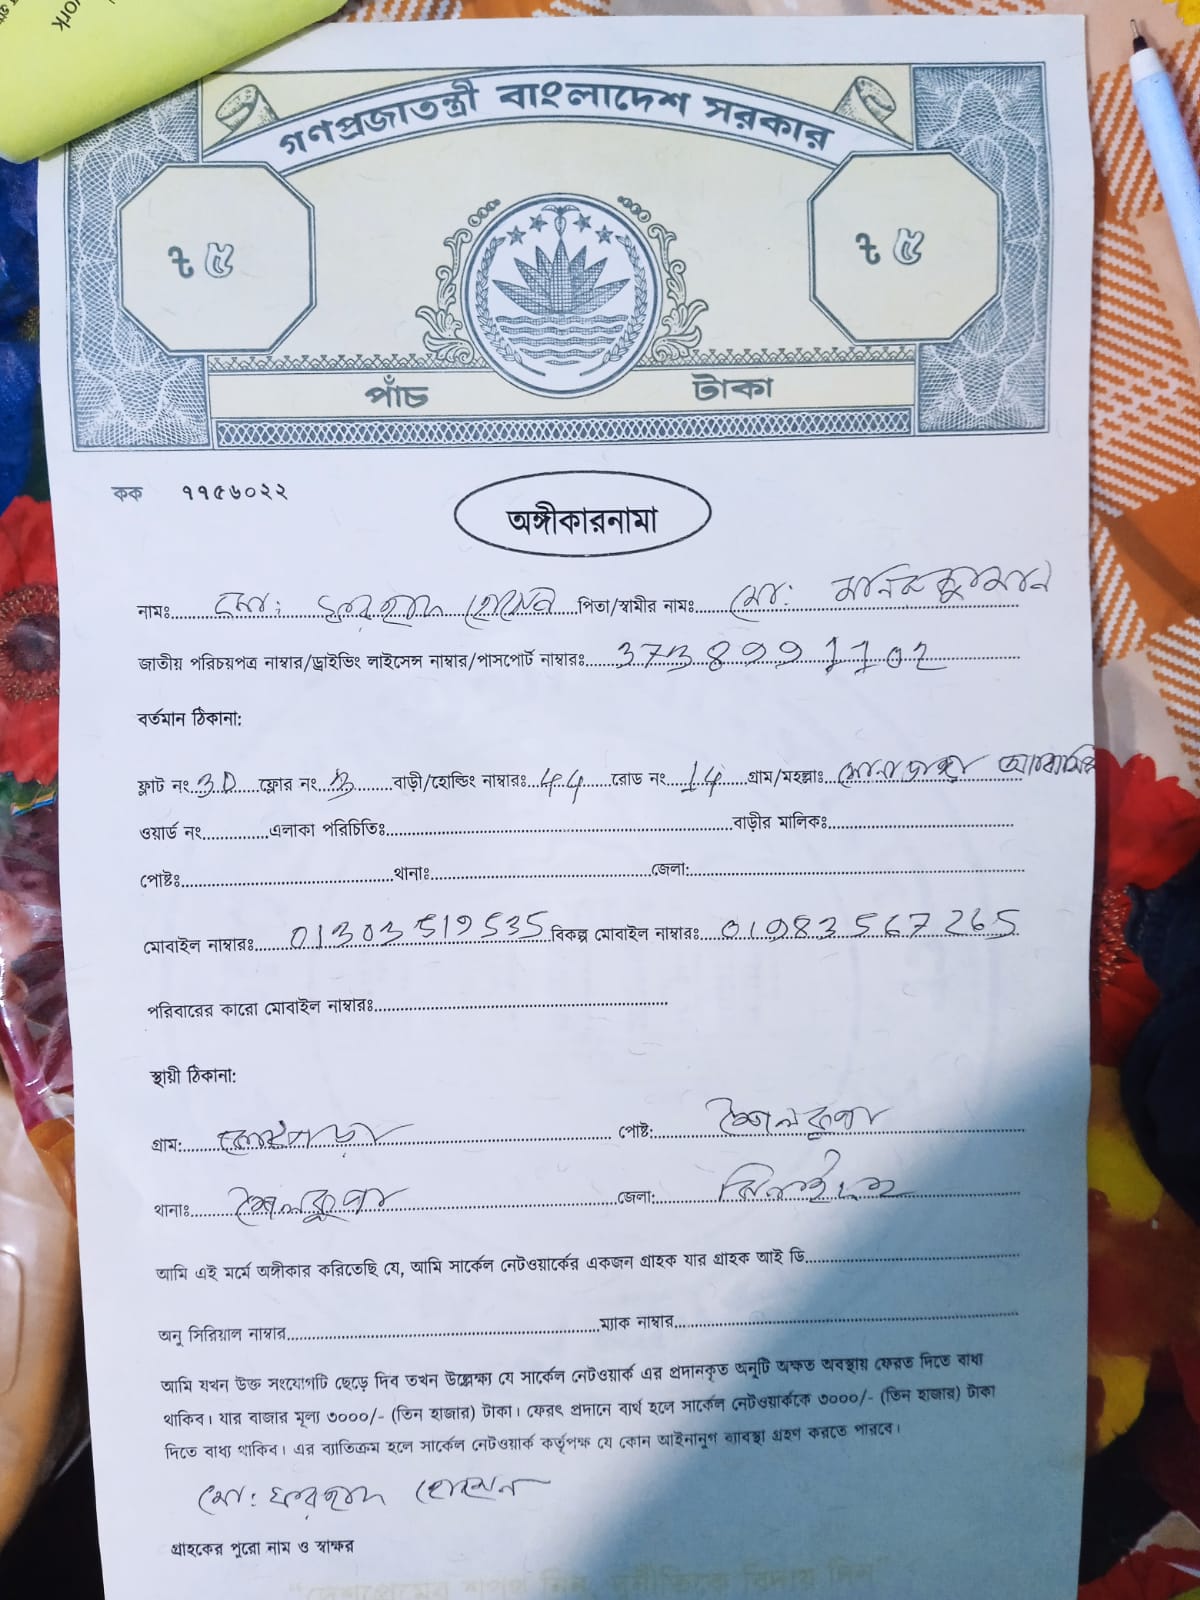 work
গণপ্রজাতন্ত্রী বাংলাদেশ সরকার
৳ ৫ ৳ ৫
পাঁচ টাকা
কক ৭৭৫৬০২২
অঙ্গীকারনামা
নামঃ মো: ফরহাদ হোসেন পিতা/স্বামীর নামঃ মো:
জাতীয় পরিচয়পত্র নাম্বার/ড্রাইভিং লাইসেন্স নাম্বার/পাসপোর্ট নাম্বারঃ 3738991102
বর্তমান ঠিকানা:
ফ্লাট নং 3D ফ্লোর নং 3 বাড়ী/হোল্ডিং নাম্বারঃ 44 রোড নং 14 গ্রাম/মহল্লাঃ
ওয়ার্ড নং এলাকা পরিচিতিঃ বাড়ীর মালিকঃ
পোষ্টঃ থানাঃ জেলা:
মোবাইল নাম্বারঃ 01303519535 বিকল্প মোবাইল নাম্বারঃ 01983567265
পরিবারের কারো মোবাইল নাম্বারঃ
স্থায়ী ঠিকানা:
গ্রাম: পোষ্ট: শৈলকুপা
থানাঃ শৈলকুপা জেলা: ঝিনাইদহ
আমি এই মর্মে অঙ্গীকার করিতেছি যে, আমি সার্কেল নেটওয়ার্কের একজন গ্রাহক যার গ্রাহক আই ডি
অনু সিরিয়াল নাম্বার ম্যাক নাম্বার
আমি যখন উক্ত সংযোগটি ছেড়ে দিব তখন উল্লেক্ষ্য যে সার্কেল নেটওয়ার্ক এর প্রদানকৃত অনুটি অক্ষত অবস্থায় ফেরত দিতে বাধ্য
থাকিব। যার বাজার মূল্য ৩০০০/- (তিন হাজার) টাকা। ফেরৎ প্রদানে ব্যর্থ হলে সার্কেল নেটওয়ার্ককে ৩০০০/- (তিন হাজার) টাকা
দিতে বাধ্য থাকিব। এর ব্যাতিক্রম হলে সার্কেল নেটওয়ার্ক কর্তৃপক্ষ যে কোন আইনানুগ ব্যাবস্থা গ্রহণ করতে পারবে।
মো: ফরহাদ হোসেন
গ্রাহকের পুরো নাম ও স্বাক্ষর
"দেশপ্রেমের শপথ নিন, দুর্নীতিকে বিদায় দিন"